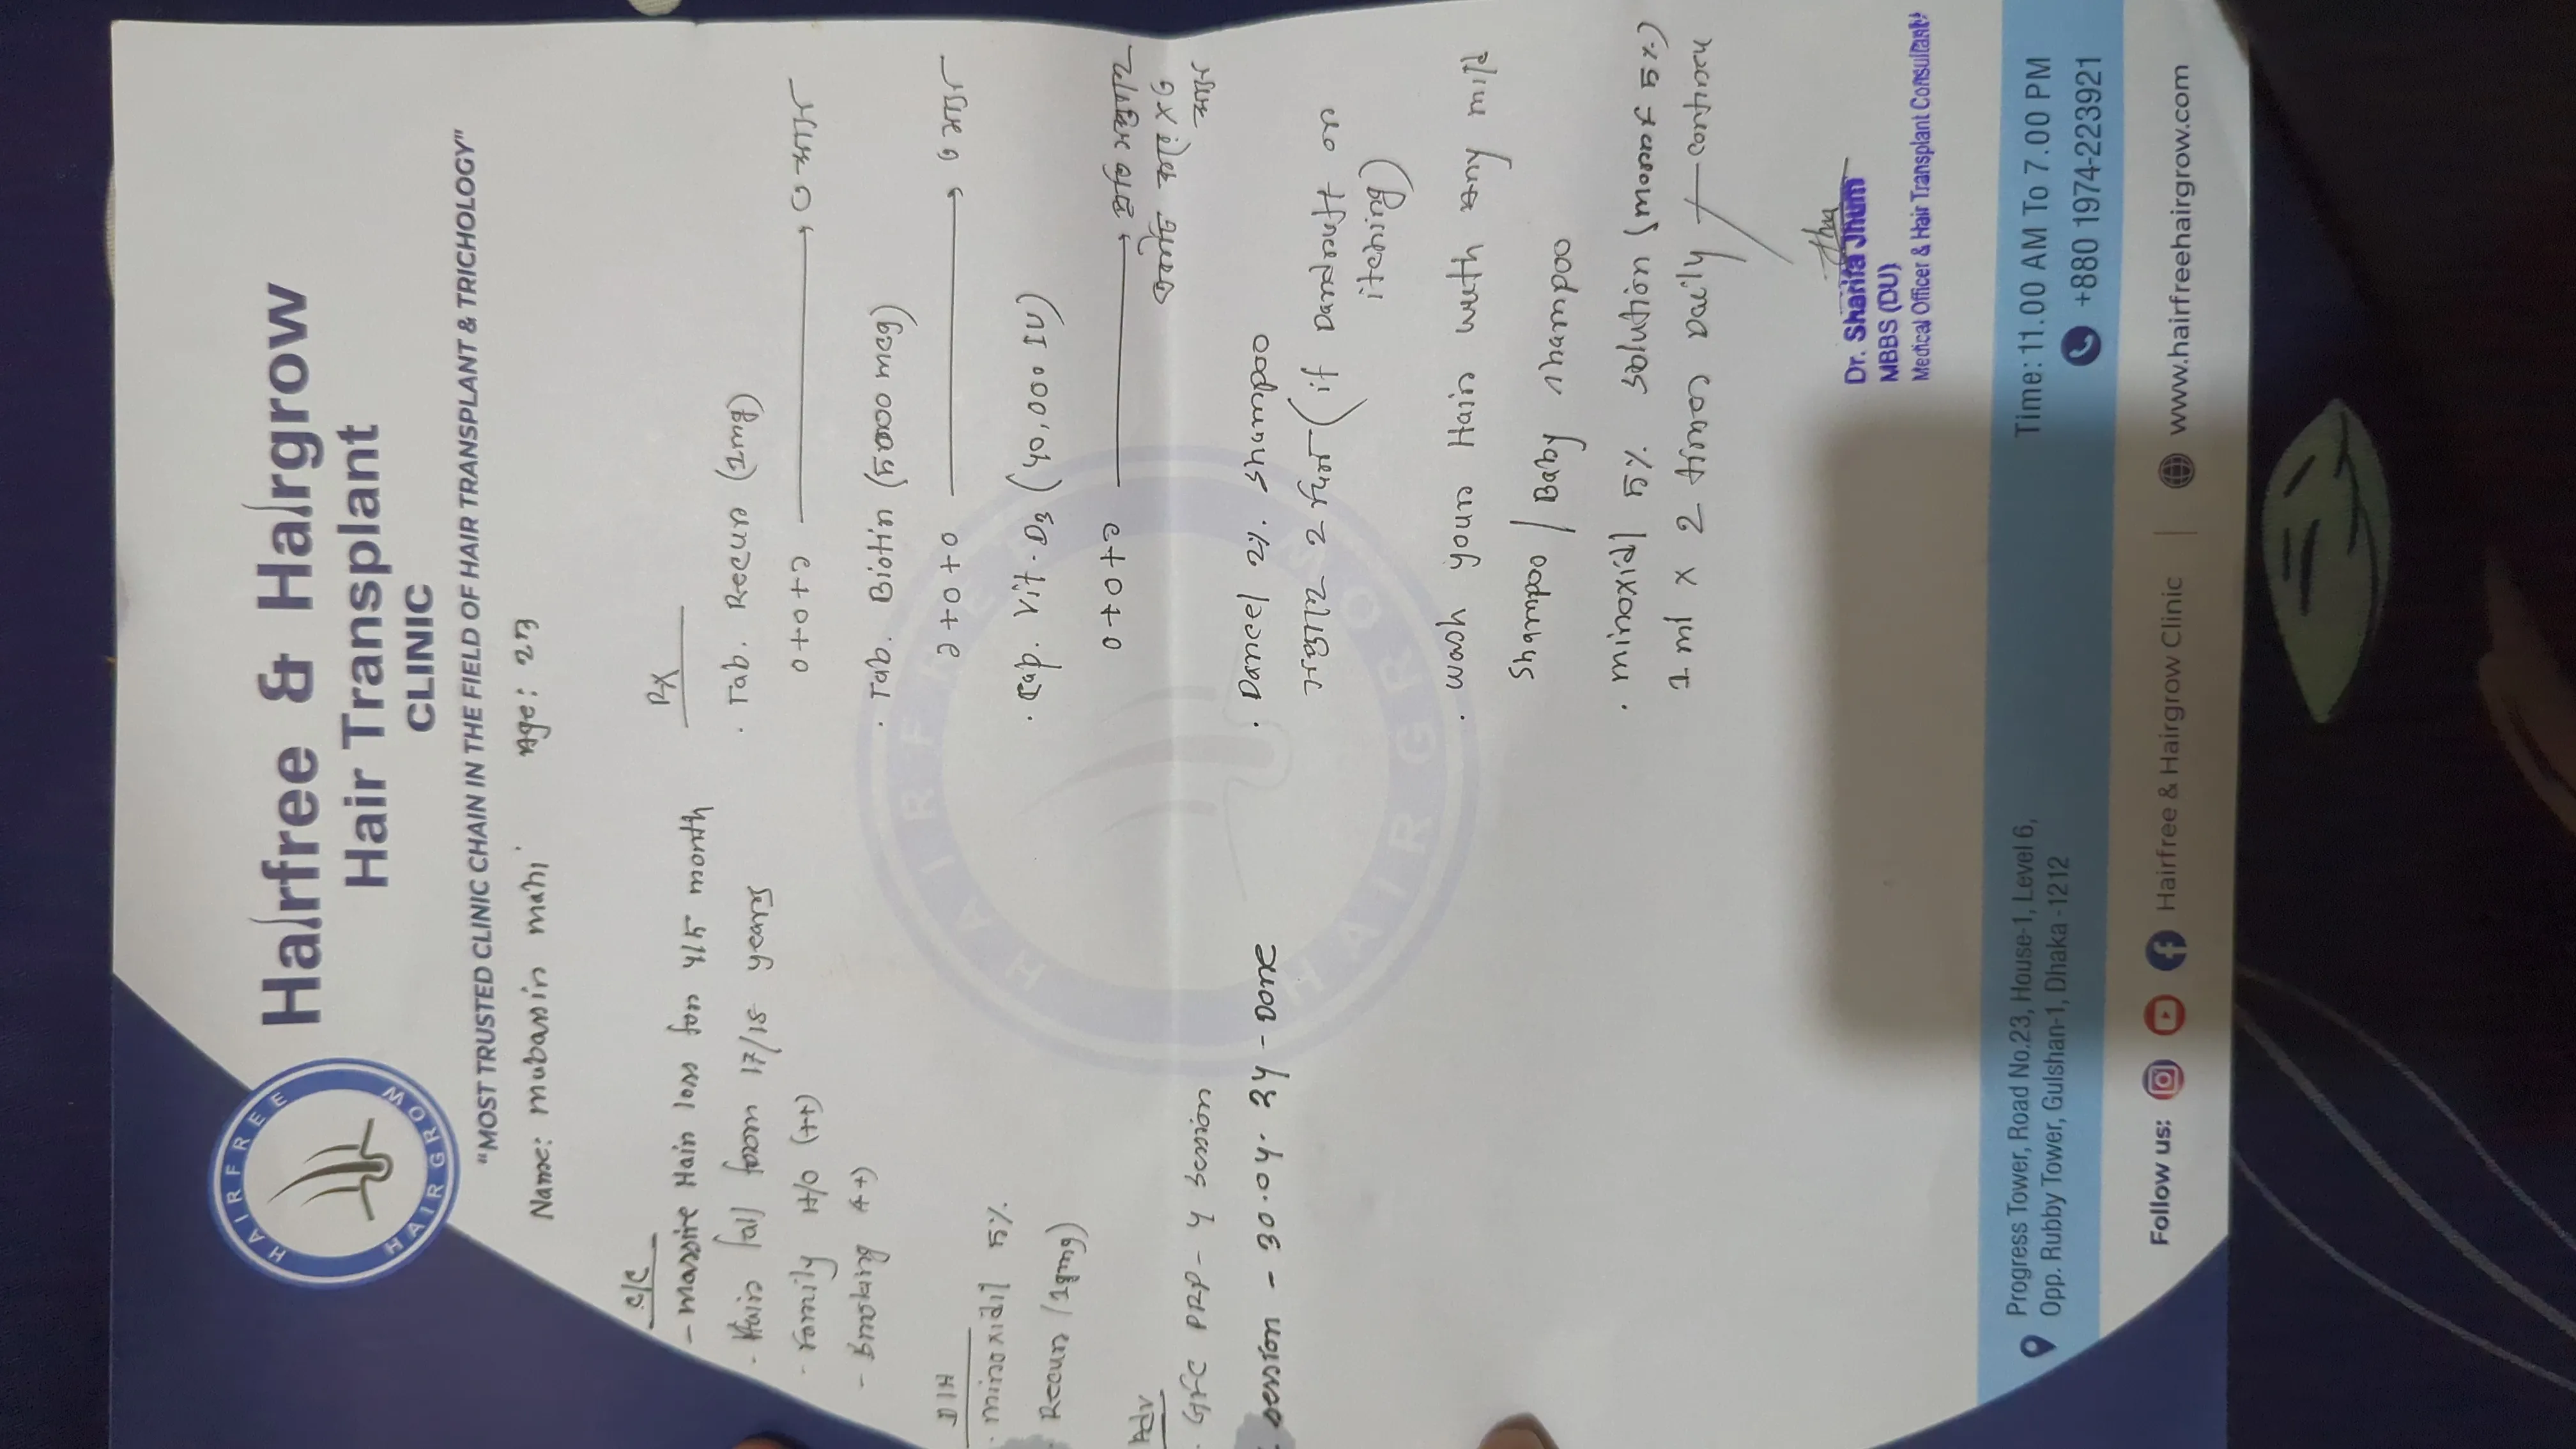 HAIRFREE
HAIRGROW
Hairfree & Hairgrow
Hair Transplant
CLINIC
"MOST TRUSTED CLINIC CHAIN IN THE FIELD OF HAIR TRANSPLANT & TRICHOLOGY"
Name: Mubassin mahi Age: 23
C/C
- Massive Hair loss for 4/5 month
- Hair fall from 17/18 years
- Family H/O (++)
- Smoking (+)
D/H
- minoxidil 5%
Recur (1mg)
Adv
- GFC PRP - 4 session
session - 30.04.24 - Done
Rx
. Tab. Recur (1mg)
0+0+১ → ৩ মাস
. Tab. Biotin (5000 mcg)
১+0+0 → ৩ মাস
. Cap. Vit. D3 (40,000 IU)
0+0+১ → প্রতি সপ্তাহে
একটি করে X ৩
মাস
. Dancel 2% shampoo
সপ্তাহে 2 দিন (if Dandruff or
itching)
. Wash your Hair with any mild
Shampoo / Baby shampoo
. minoxidil 5% solution (5%)
1 ml x 2 times Daily continue
Dr. Sharifa Jhum
MBBS (DU)
Medical Officer & Hair Transplant Consultant
HAIRFREE
HAIRGROW
Progress Tower, Road No.23, House-1, Level 6,
Opp. Rubby Tower, Gulshan-1, Dhaka -1212
Time: 11.00 AM To 7.00 PM
+880 1974-223921
Follow us: Hairfree & Hairgrow Clinic | www.hairfreehairgrow.com